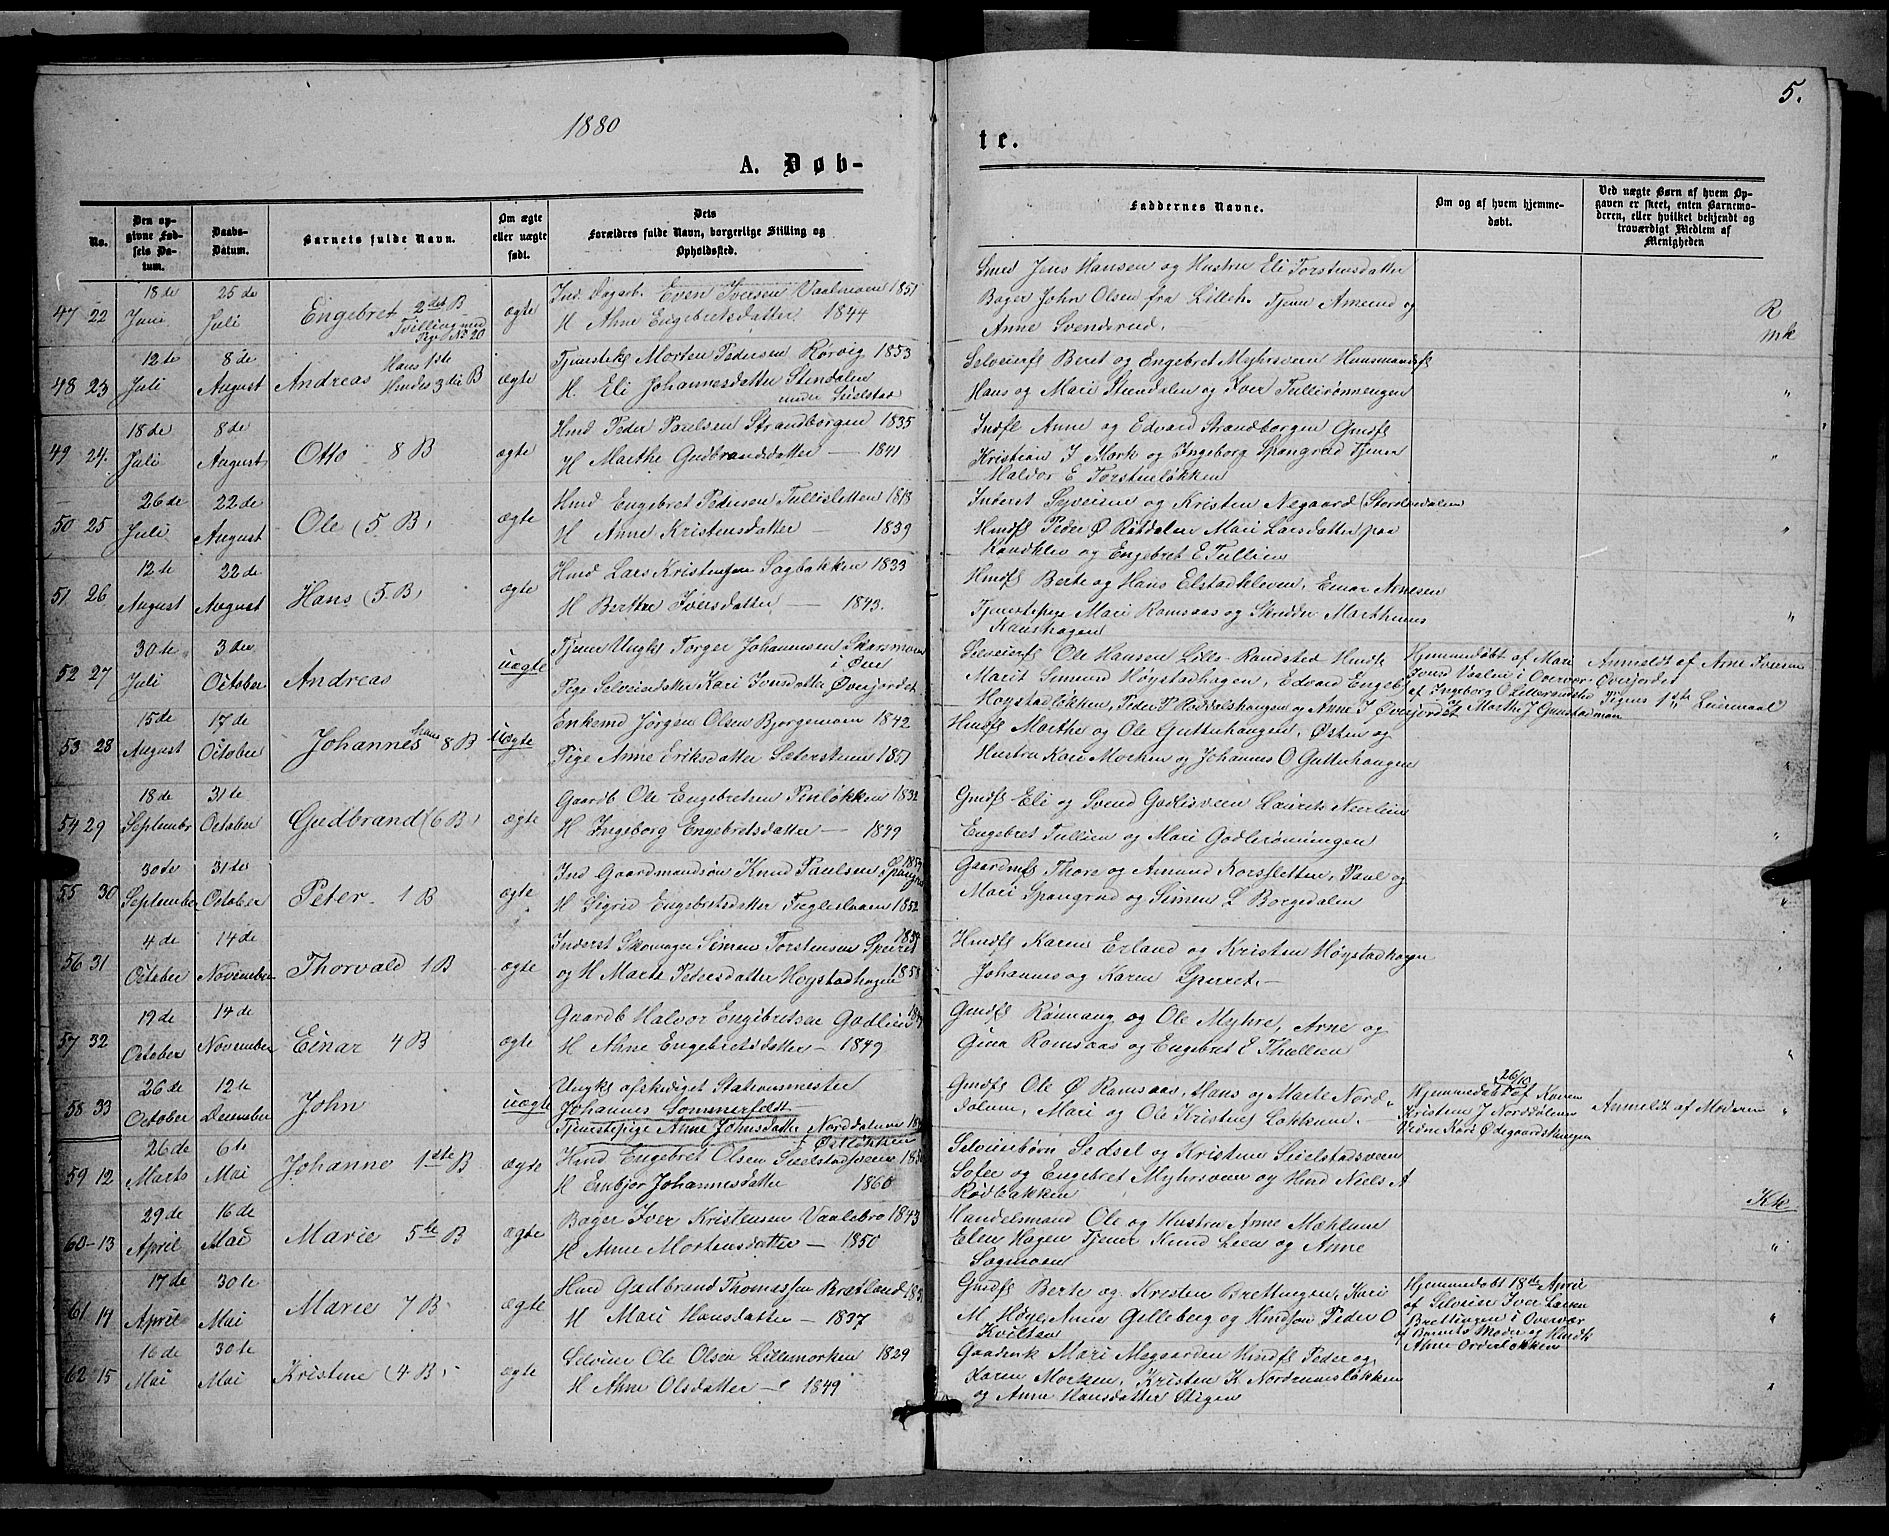 1880
5.
A. Døb-
te.
No.
Den op-
givne Fød-
sels Da-
tum.
Daabs-
Datum.
Barnets fulde Navn.
Om ægte
eller uægte
født.
Dets
Forældres fulde Navn, borgerlige Stilling og
Opholdssted.
Faddernes Navne.
Om og af hvem hjemme-
døbt.
Ved uægte Børn af hvem Op-
gaven er skeet, enten Barnemo-
deren, eller hvilket bekjendt og
troværdigt Medlem af
Menigheden
47 22
18de
Juni
25de
Juli
Engebret 2det B
Tvilling med
Pige No 20
ægte
Ind. Dagarb. Even Iversen Vaalmoen 1851
H Ahne Engebretsdatter 1844
Smed Jens Hansen og Hustru Eli Torstensdatter
Bager John Olsen fra Lilleh. Tjener Amund og
Anne Svenderud.
R
mk
48 23
12te
Juli
8de
August
Andreas Hans 1ste
Hendes 3die B
ægte
Morten Pedersen Rørvig 1853
H. Eli Johannesdatter Stendalen
under Sielstad
Selveierfl Beret og Engebret Myhrsveen Husmandsfl
Hans og Mari Stendalen og Iver Tullirønnengen
"
49 24.
18de
Juli
8de
August
Otto 8 B
ægte
Hmd Peder Paulsen Strandborgen 1835
H Marthe Gudbrandsdatter — 1841
Indfl Anne og Edvard Strandborgen Gmdfl
Kristian J Mork og Ingeborg Spangrud Tjener
Haldor E Torstenløkken
"
50 25
26de
Juli
22de
August
Ole (5 B)
ægte
Hmd Engebret Pedersen Tullisletten 1813
H Anne Kristensdatter — 1839
Inderst Syverine og Kristen Negaard (Stordendalen
Hmdfl Peder Ø Røtdalen Mari Larsdatter paa
Randklev og Engebret E Tullien
"
51 26
12te
August
22de
August
Hans (5 B)
ægte
Hmd Lars Kristensen Sagbakken 1833
H Berthe Iversdatter — 1843.
Hmdfl Berte og Hans Elstadkleven, Einar Arnesen
Tjenestepige Mari Ramsaas og Skrædder Marthinus
"
52 27
30te
Juli
3die
October
Andreas
uægte
Tjener Ungkl Torger Johannesen Skarsmoen
i Øier
Pige Selveierdatter Kari Iversdatter Øverjordet
Selveierfl Ole Hansen Lille-Randsted Hmdfl
Marit Simund Høystadhagen, Edvard Engeb
Høystadløkken, Peder P Høddalshaugen og Anne I Øverjordet
Hjemmedøbt af Mari
Iversd Vaalen i Overvær
af Ingeborg O Lillerandsted
og Marthe J Gunstadmoen
Anmeldt af Arne Iversen
Øverjordet
Pigens 1ste Leiermaal
53 28
15de
August
17de
October
Johannes hans 8 B
Uægte
Enkemd Jørgen Olsen Bjørgemoen 1842
Pige Anne Eriksdatter Sæterstuen 1851
Hmdfl Marthe og Ole Guttuhaugen, Østen og
Hustru Kari Moehen og Johannes O Guttuhaugen
"
54 29
18de
September
31te
October
Gudbrand (6 B)
ægte
Gaardb Ole Engebretsen Tenløkken 1832
H Ingeborg Engebretsdatter — 1849
Gmdfl Eli og Svend Godlisveen Laurits Nærlien
Engebret Tullien og Mari Godlirønningen
"
55 30
30de
September
31te
October
Peter. 1 B
ægte
Ind Gaardmandsøn Knud Paulsen Spangrud
H Sigrid Engebretsdatter Fuglesluen 1852
Gaardmfl Thore og Amund Korssletten, Paul og
Mari Spangrud og Simen L Borgedalen
"
56 31
4de
October
14de
November
Thorvald 1 B
ægte
Inderst Skomager Simen Torstensen Sperret
og H Marte Pedersdatter Høystadhagen
Hmdfl Karen Erland og Kristen Høystadhagen
Johannes og Karen Sperret. —
"
57 32
19de
October
14de
November
Einar 4 B
ægte
Gaardb Halvor Engebretsen Godlien
H Ahne Engebretsdatter — 1849
Gmdfl Rønnaug og Ole Myhre, Arne og
Gina Ramsaas og Engebret E Thullien
"
58 33
26de
October
12te
December
John
uægte
Ungkl afskediget Stationsmester
Johannes Sommerfeldt
Tjenestepige Anne Johnsdatter Norddalen
Østløkken
Gmdfl Ole Ø Ramsaas, Hans og Marte Nord-
Mari og Ole Kristens Løkken.
Hjemmedøbt 26/10 af Karen
Kristens J Norddølen
Vidne Kari Ødegaardshaugen
Anmeldt af Moderen "
59 12
26de
Marts
6te
Mai
Johanne 1ste B
ægte
Hmd Engebret Olsen Sielstadsveen
H Embjør Johannesdatter 1860
Selveierbørn Sidsel og Kristen Sielstadsveen
Sofie og Engebret Myhrsveen og Hmd Niels A
Rødbakken
Kk
60-13
29de
April
16de
Mai
Marie 5te B
ægte
Bager Iver Kristensen Vaalebro 1843
H Anne Mortensdatter — 1850
Handelsmand Ole og Hustru Anne Mæhlum
Elen Hagen Tjener Knud Lien og Anne
Sagmoen
"
61 14
17de
April
30te
Mai
Marie 7 B
ægte
Hmd Gudbrand Thomessen Brætland
H Mari Hansdatter — 1837
Gmdfl Berte og Kristen Brettingen, Kari
M Høye, Anne Gilleberg og Hmdsøn Peder O
Kvilten
Hjemmedøbt 18de April
af Selveier Iver Larsen
Brettingen i Overvær
af Barnets Moder og Hmdk
Anne Orderløkken
"
62 15
16de
Mai
30te
Mai
Kristine (4 B)
ægte
Selveier Ole Olsen Lillemorken 1829
H Ahne Olsdatter — 1849
Gaardenk Mari Megaarden Hmdfl Peder og
Karen Morken, Kristen K Nordrumsløkken
og Anne Hansdatter Stigen
"